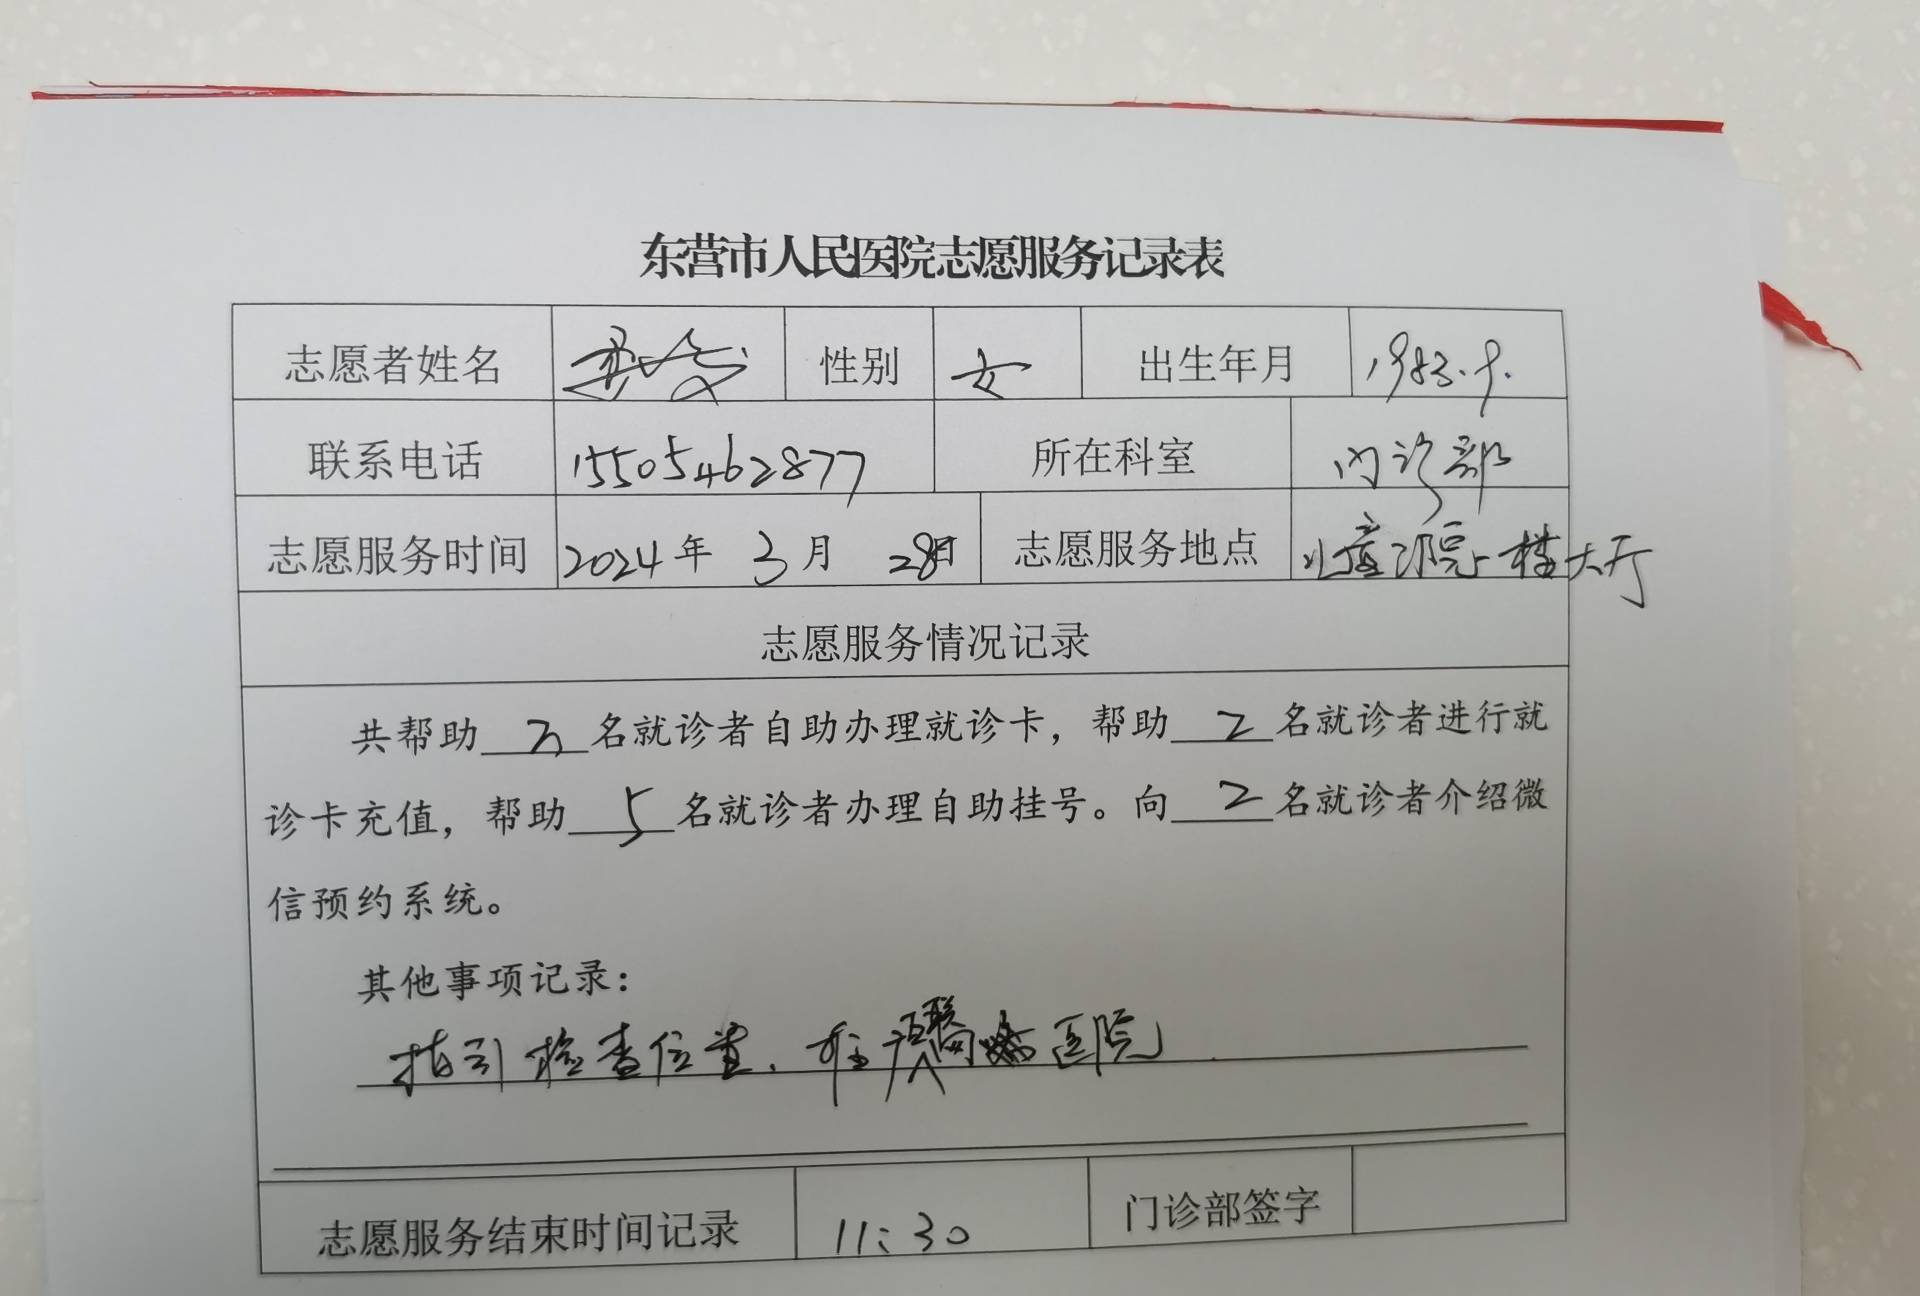 东营市人民医院志愿服务记录表
志愿者姓名 性别 女 出生年月 1983.9.
联系电话 15505462877 所在科室 门诊部
志愿服务时间 2024年 3月 28日 志愿服务地点 儿童医院一楼大厅
志愿服务情况记录
共帮助 3 名就诊者自助办理就诊卡，帮助 2 名就诊者进行就
诊卡充值，帮助 5 名就诊者办理自助挂号。向 2 名就诊者介绍微
信预约系统。
其他事项记录：
指引检查位置. 医院
志愿服务结束时间记录 11:30 门诊部签字